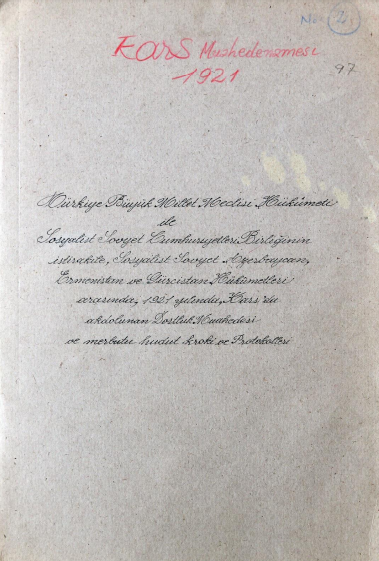 No. 2.
Kars Muahedenamesi
1921
97
Türkiye Büyük Millet Meclisi Hükûmeti
ile
Sosyalist Sovyet Cumhuriyetleri Birliğinin
iştirakile, Sosyalist Sovyet Azerbaycan,
Ermenistan ve Gürcistan Hükûmetleri
arasında, 1921 yılında, Kars'da
akdolunan Dostluk Muahedesi
ve merbutu hudut kroki ve Protokolleri